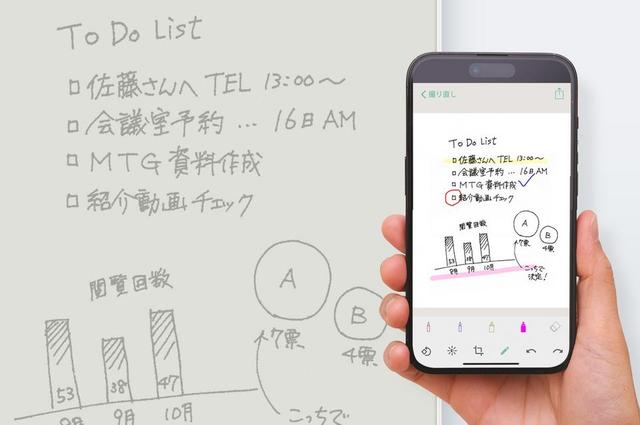 To Do List
□佐藤さんへTEL 13:00〜
□会議室予約…16日AM
□MTG資料作成
□紹介動画チェック
閲覧回数
A
B
17票
4票
53
38
47
8月
9月
10月
こっちで
撮り直し
To Do List
□佐藤さんへTEL 13:00〜
□会議室予約…16日AM
□MTG資料作成
□紹介動画チェック
閲覧回数
A
B
17票
4票
53
38
47
8月
9月
10月
こっちで
決定!